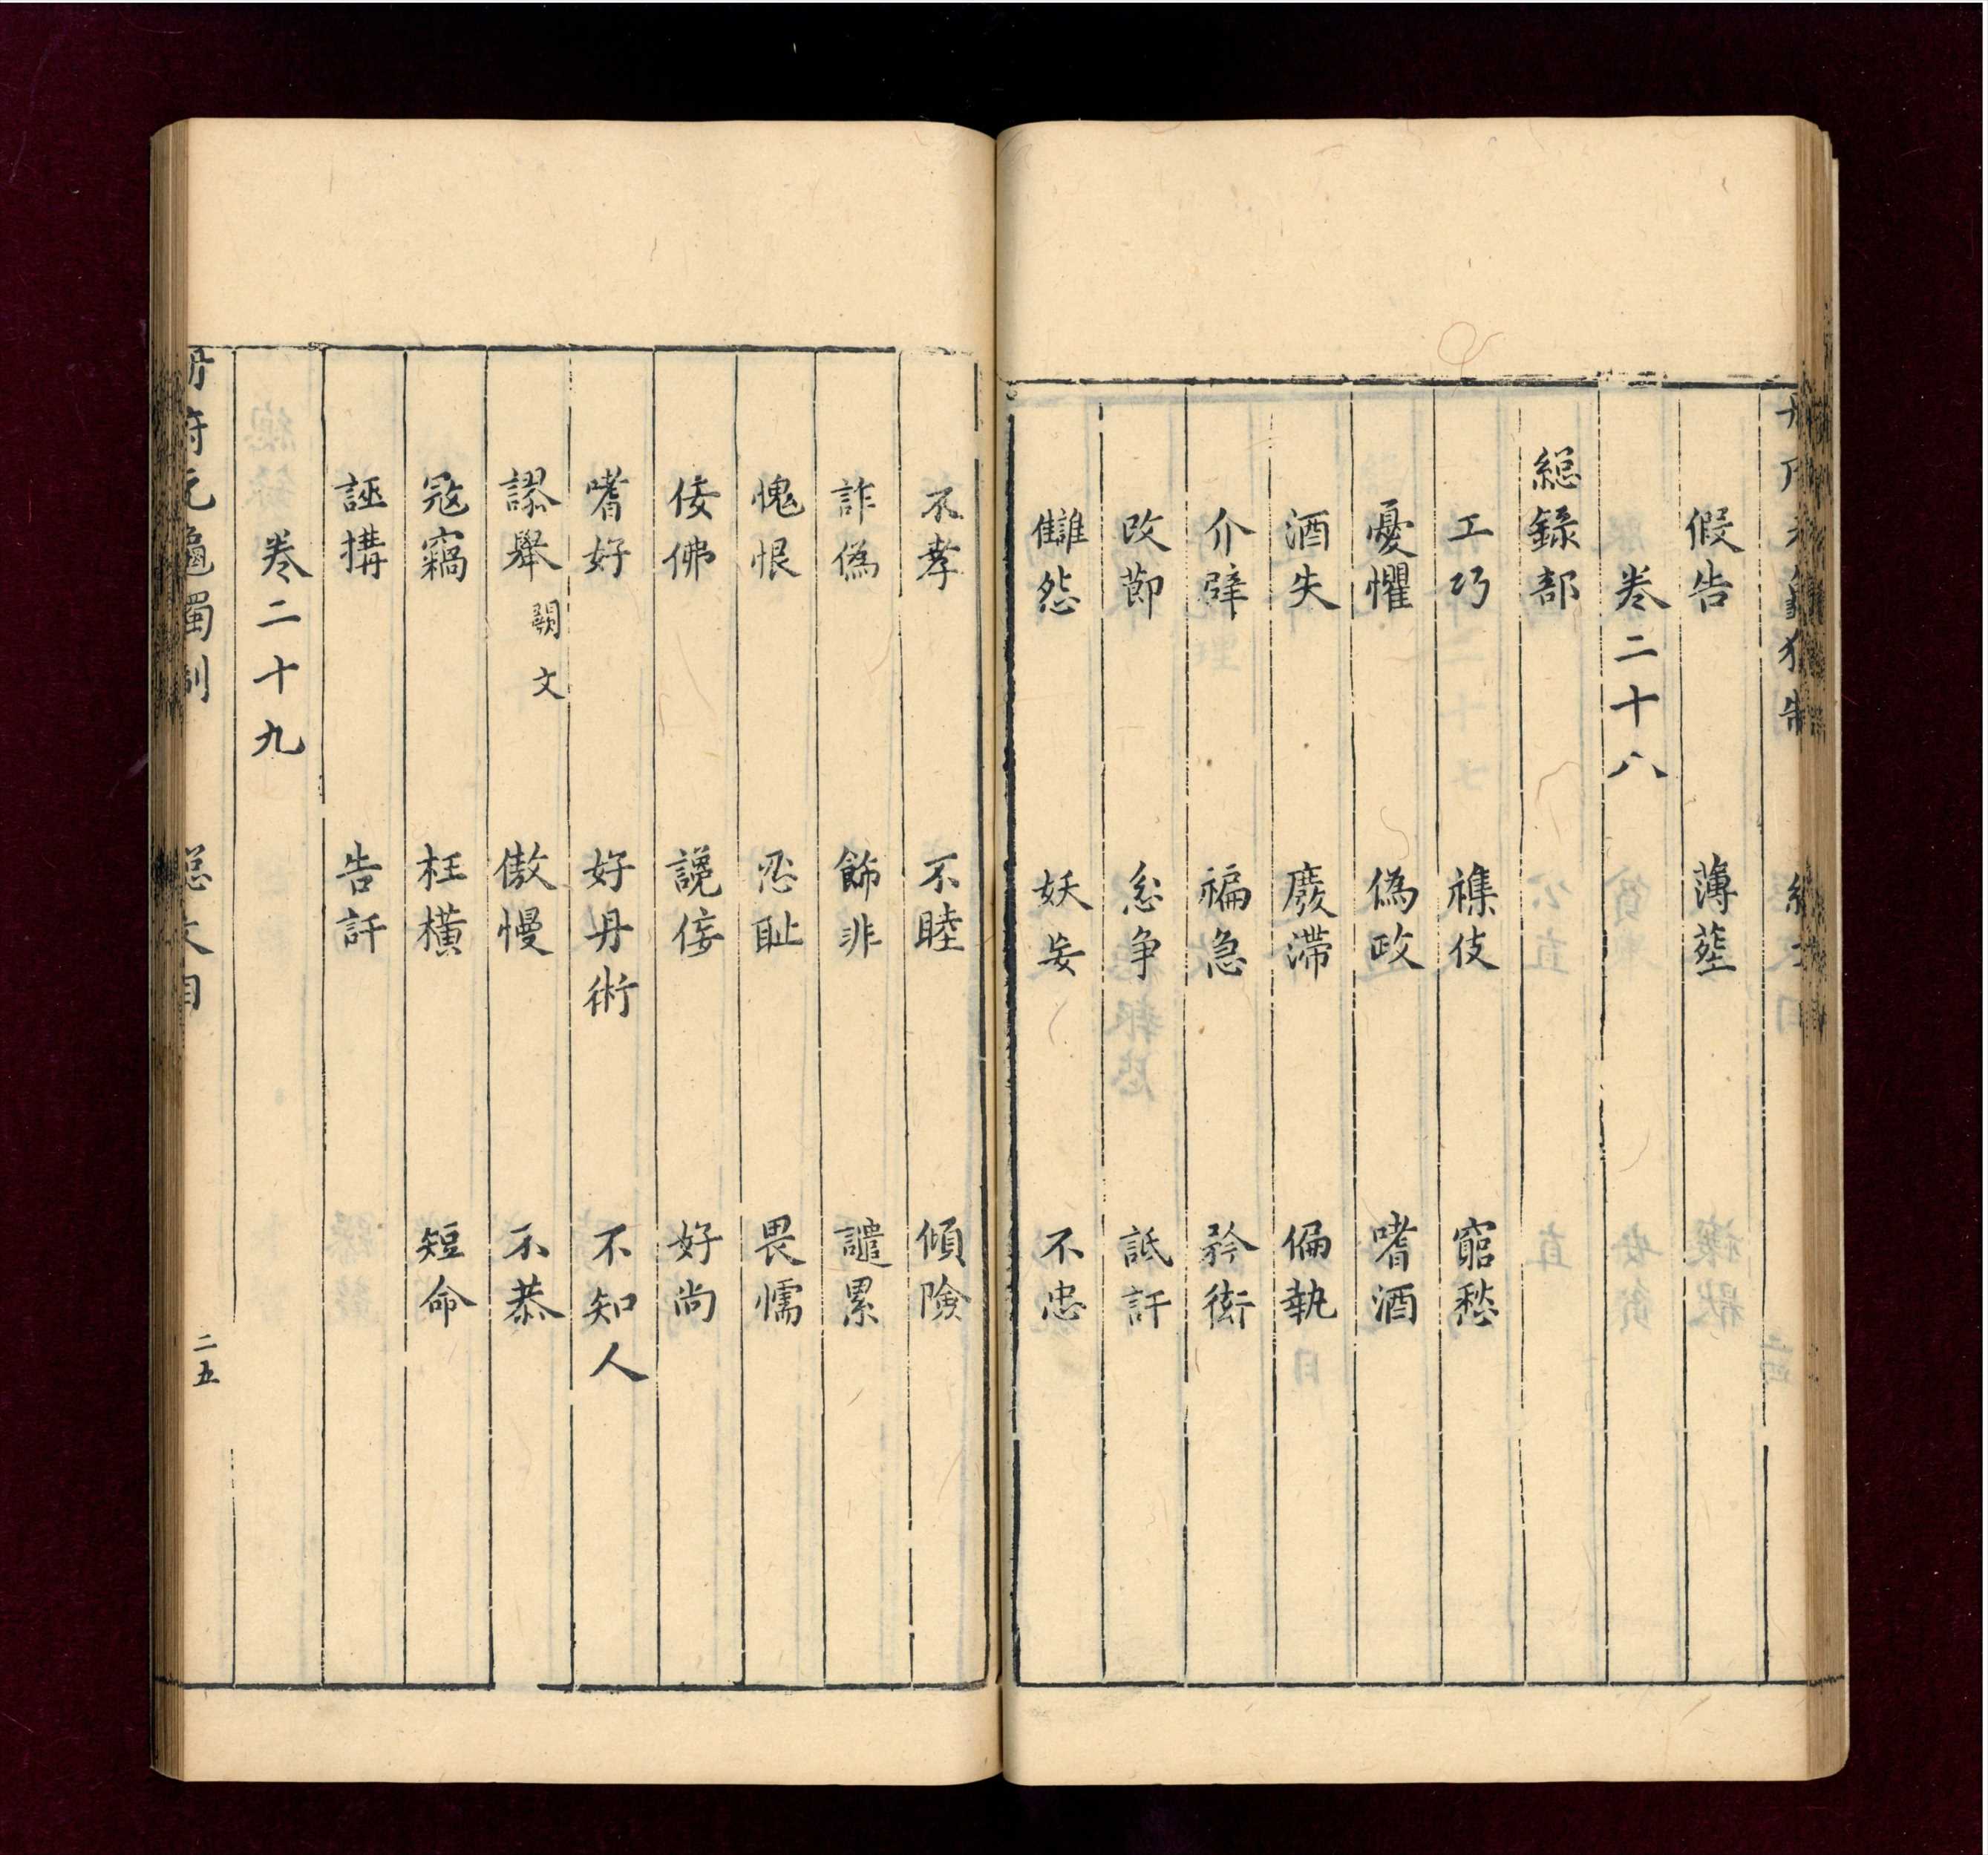 假告　薄葬
卷二十八
總錄部
工巧　襍伎　窮愁
憂懼　偽政　嗜酒
酒失　廢滯　偏執
介僻　褊急　矜衒
改節　忿爭　詆訐
讎怨　妖妄　不忠
不孝　不睦　傾險
詐偽　飾非　譴累
愧恨　忍恥　畏懦
佞佛　讒佞　好尚
嗜好　好丹術　不知人
謬舉闕文　傲慢　不恭
冦竊　枉橫　短命
誣搆　告訐
卷二十九
府元龜獨制　總大目　二五